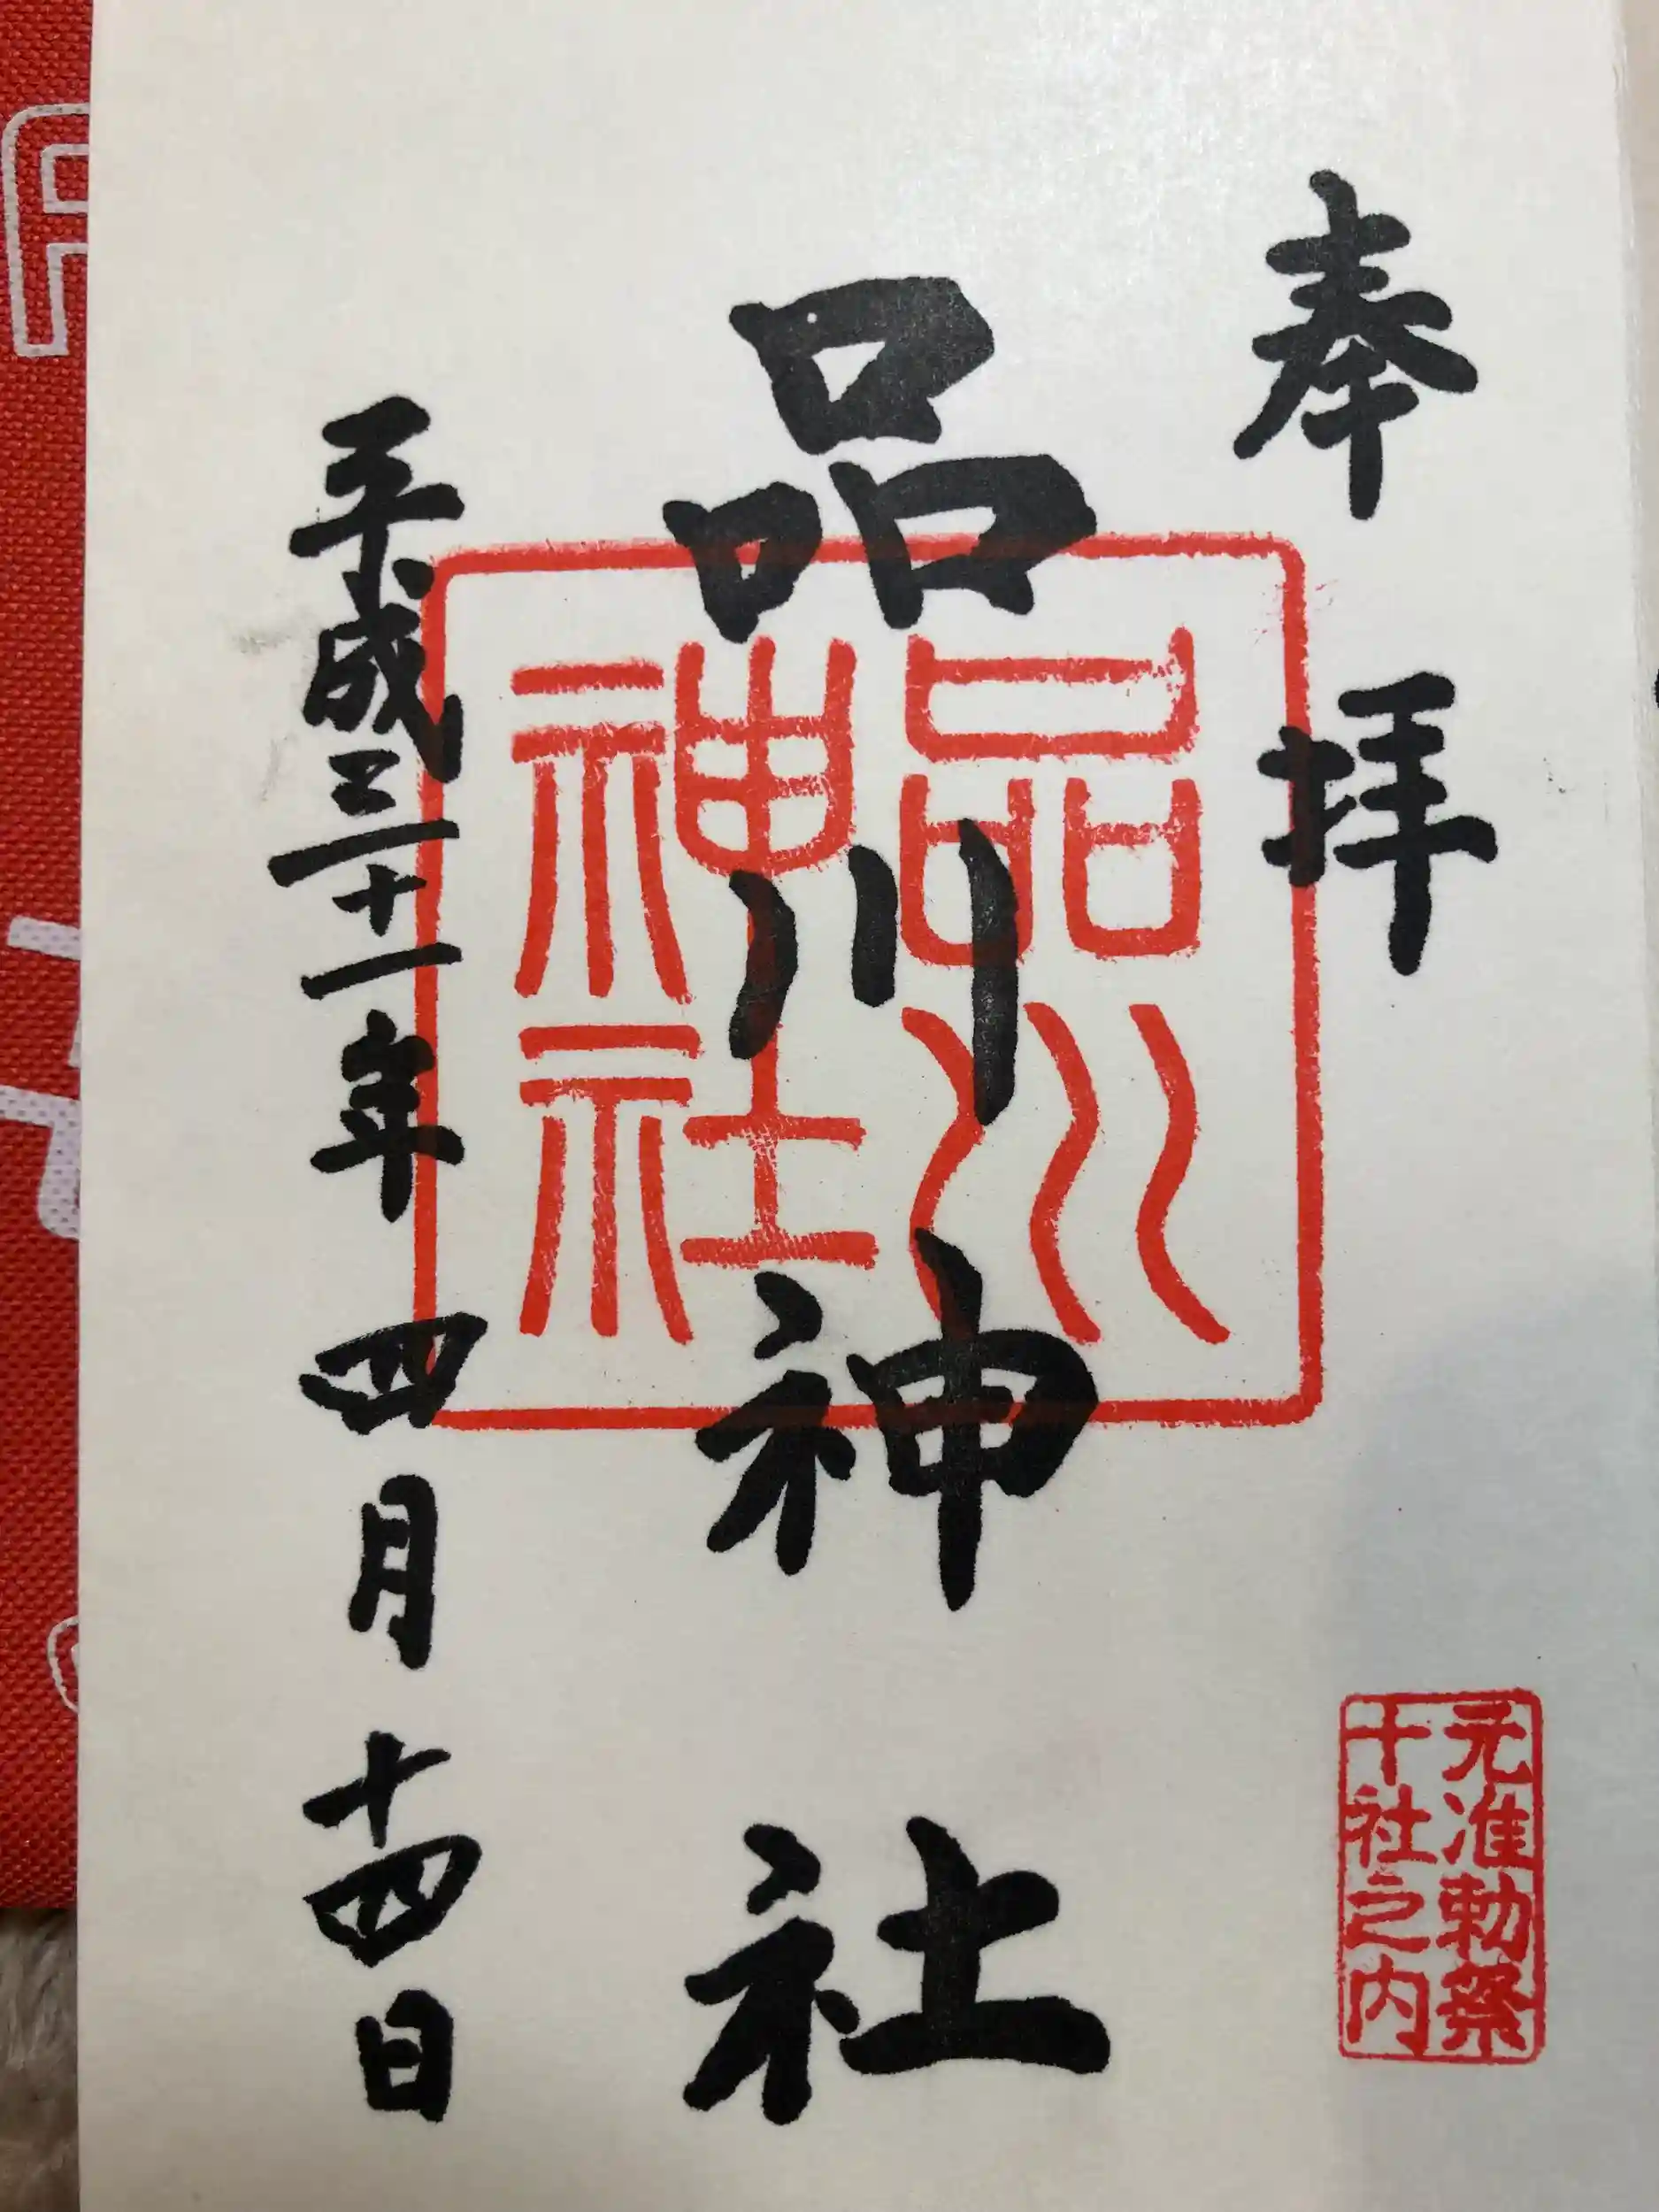 奉拝
元准勅祭
十社之内
品川神社
品川
神社
平成三十一年四月十四日